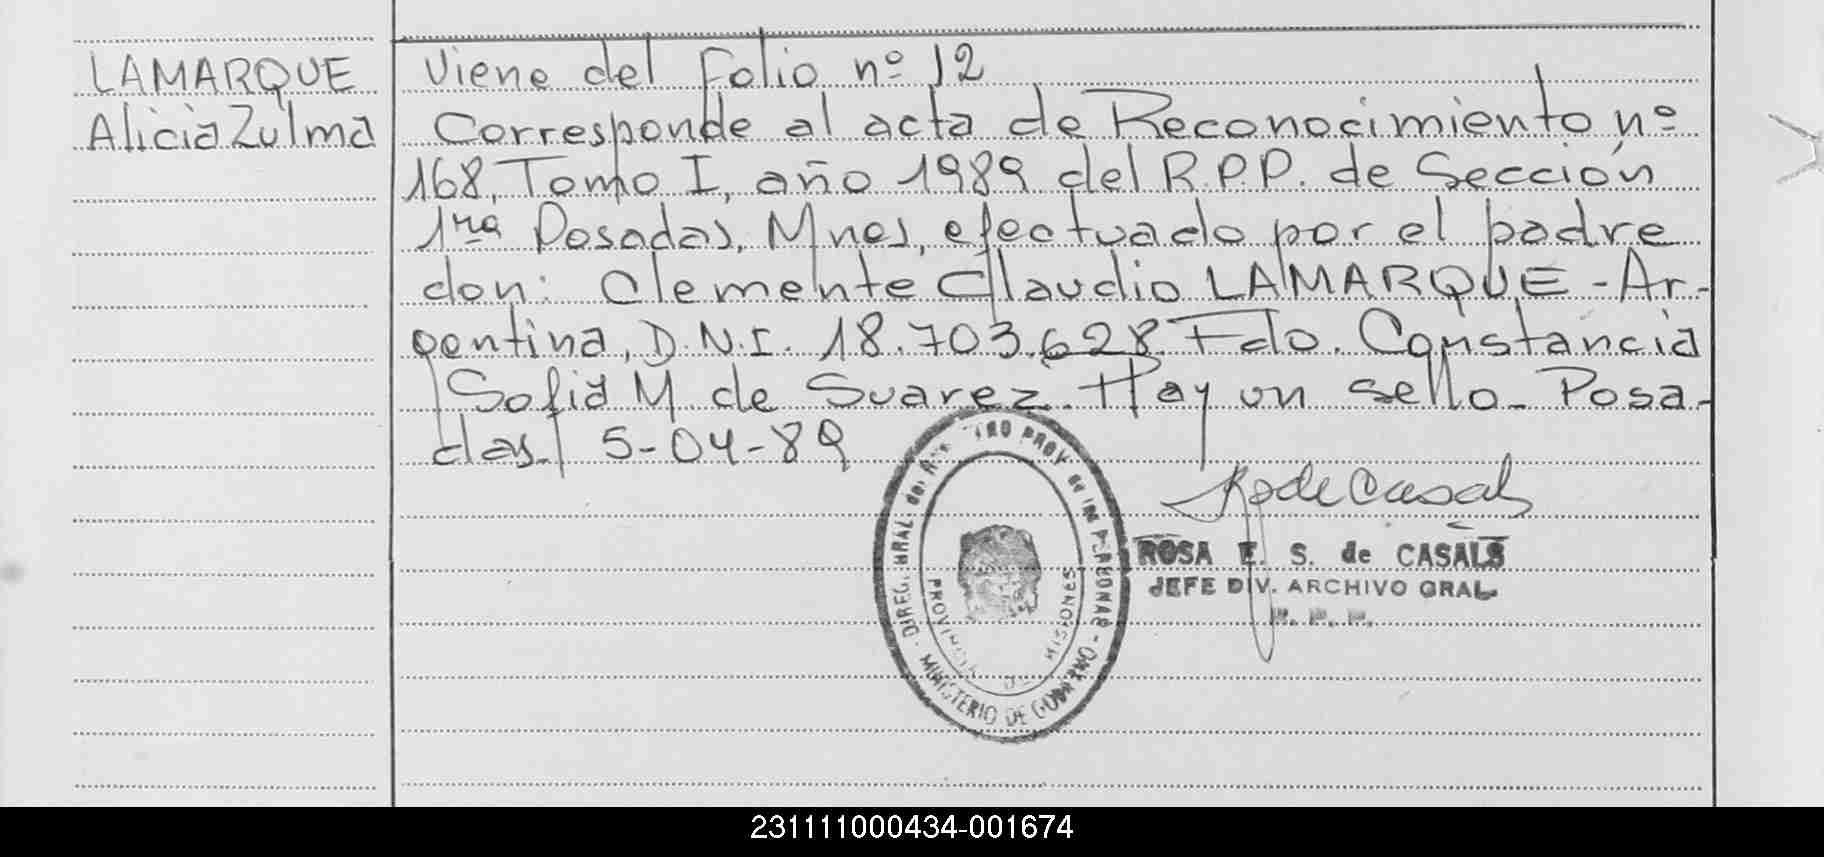 LAMARQUE
Alicia Zulma
Viene del folio nº 12
Corresponde al acta de Reconocimiento nº
168, Tomo I, año 1989 del R.P.P. de Sección
1ra Posadas, Mnes, efectuado por el padre
don: Clemente Claudio LAMARQUE - Ar-
gentina, D.N.I. 18.703.628. Fdo. Constancia
Sofia M. de Suarez. Hay un sello - Posa-
das. 5-04-89
ROSA E. S. de CASALS
JEFE DIV. ARCHIVO GRAL
R. P. P.
DIREC. GRAL del PROV de las PERSONAS - MINISTERIO DE GOBIERNO
PROVINCIA DE MISIONES
231111000434-001674